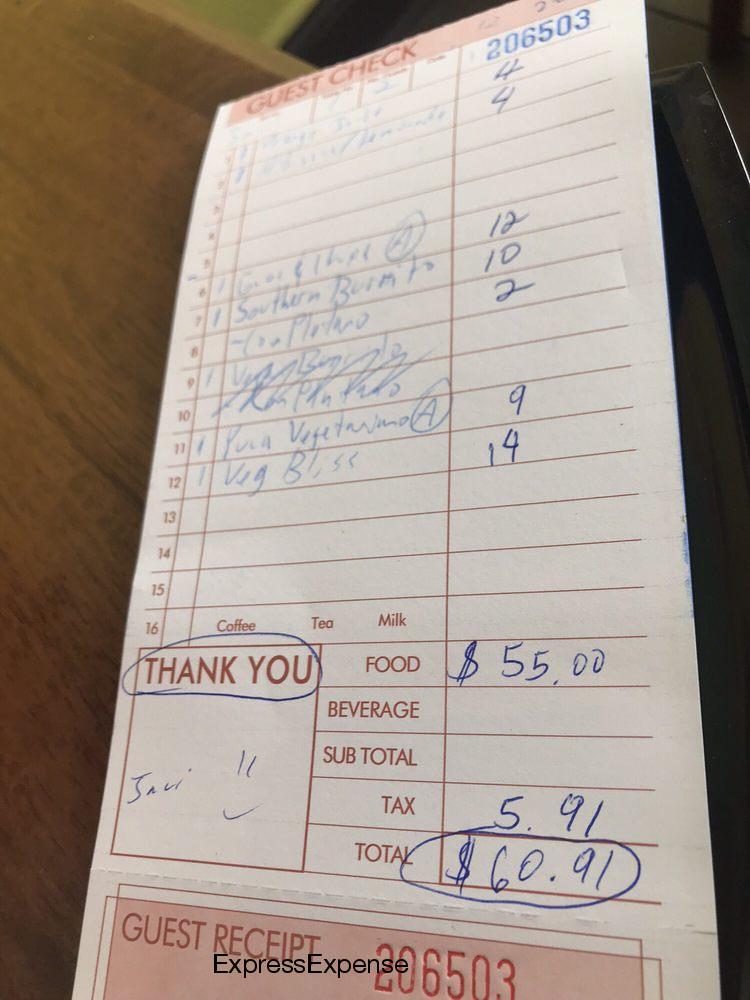 GUEST CHECK 206503
4
1 Orange Juice 4
1 Hibiscus/Lemonade
5
6 1 Guac & Chips (A) 12
7 1 Southern Burrito 10
8 - Con Platano 2
9 1 Vega Burrito
10
11 1 Yuca Vegetariano (A) 9
12 1 Veg Bliss 14
13
14
15
16 Coffee Tea Milk
THANK YOU FOOD $ 55.00
BEVERAGE
SUB TOTAL
Javi TAX 5.91
TOTAL $60.91
GUEST RECEIPT 206503
ExpressExpense